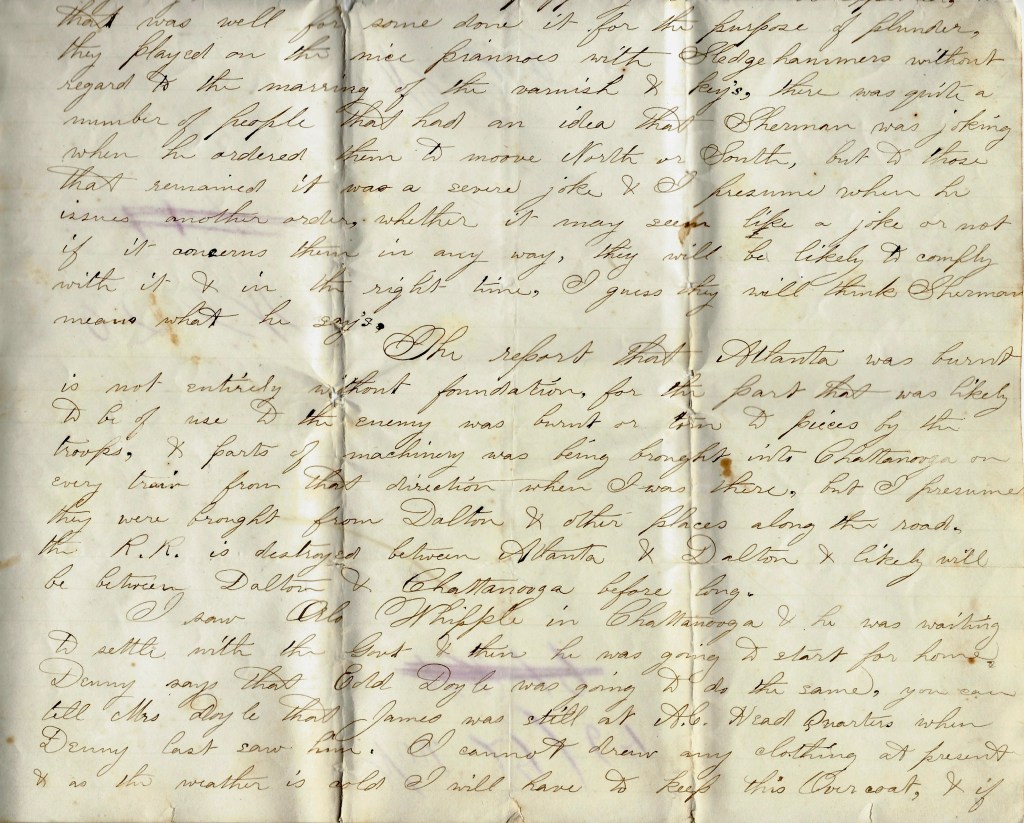 that was well for some done it for the purpose of plunder,
they played on the nice piannoes with Sledgehammers without
regard to the marring of the varnish & key's, there was quite a
number of people that had an idea that Sherman was joking
when he ordered them to moove North or South, but to those
that remained it was a severe joke & I presume when he
issues another order, whether it may seem like a joke or not
if it concerns them in any way, they will be likely to comply
with it & in the right time, I guess they will think Sherman
means what he say's,
The report that Atlanta was burnt
is not entirely without foundation, for the part that was likely
to be of use to the enemy was burnt or torn to pieces by the
troops, & parts of machinery was being brought into Chattanooga on
every train from that direction when I was there, but I presume
they were brought from Dalton & other places along the road.
the R.R. is destroyed between Atlanta & Dalton & likely will
be between Dalton & Chattanooga before long.
I saw Whipple in Chattanooga & he was waiting
to settle with the Govt & then he was going to start for home.
Denny says that Edd Doyle was going to do the same, you can
tell Mrs Doyle that James was still at A.C. Head Quarters when
Denny last saw him. I cannot draw any clothing at present
& as the weather is cold I will have to keep this Overcoat, & if